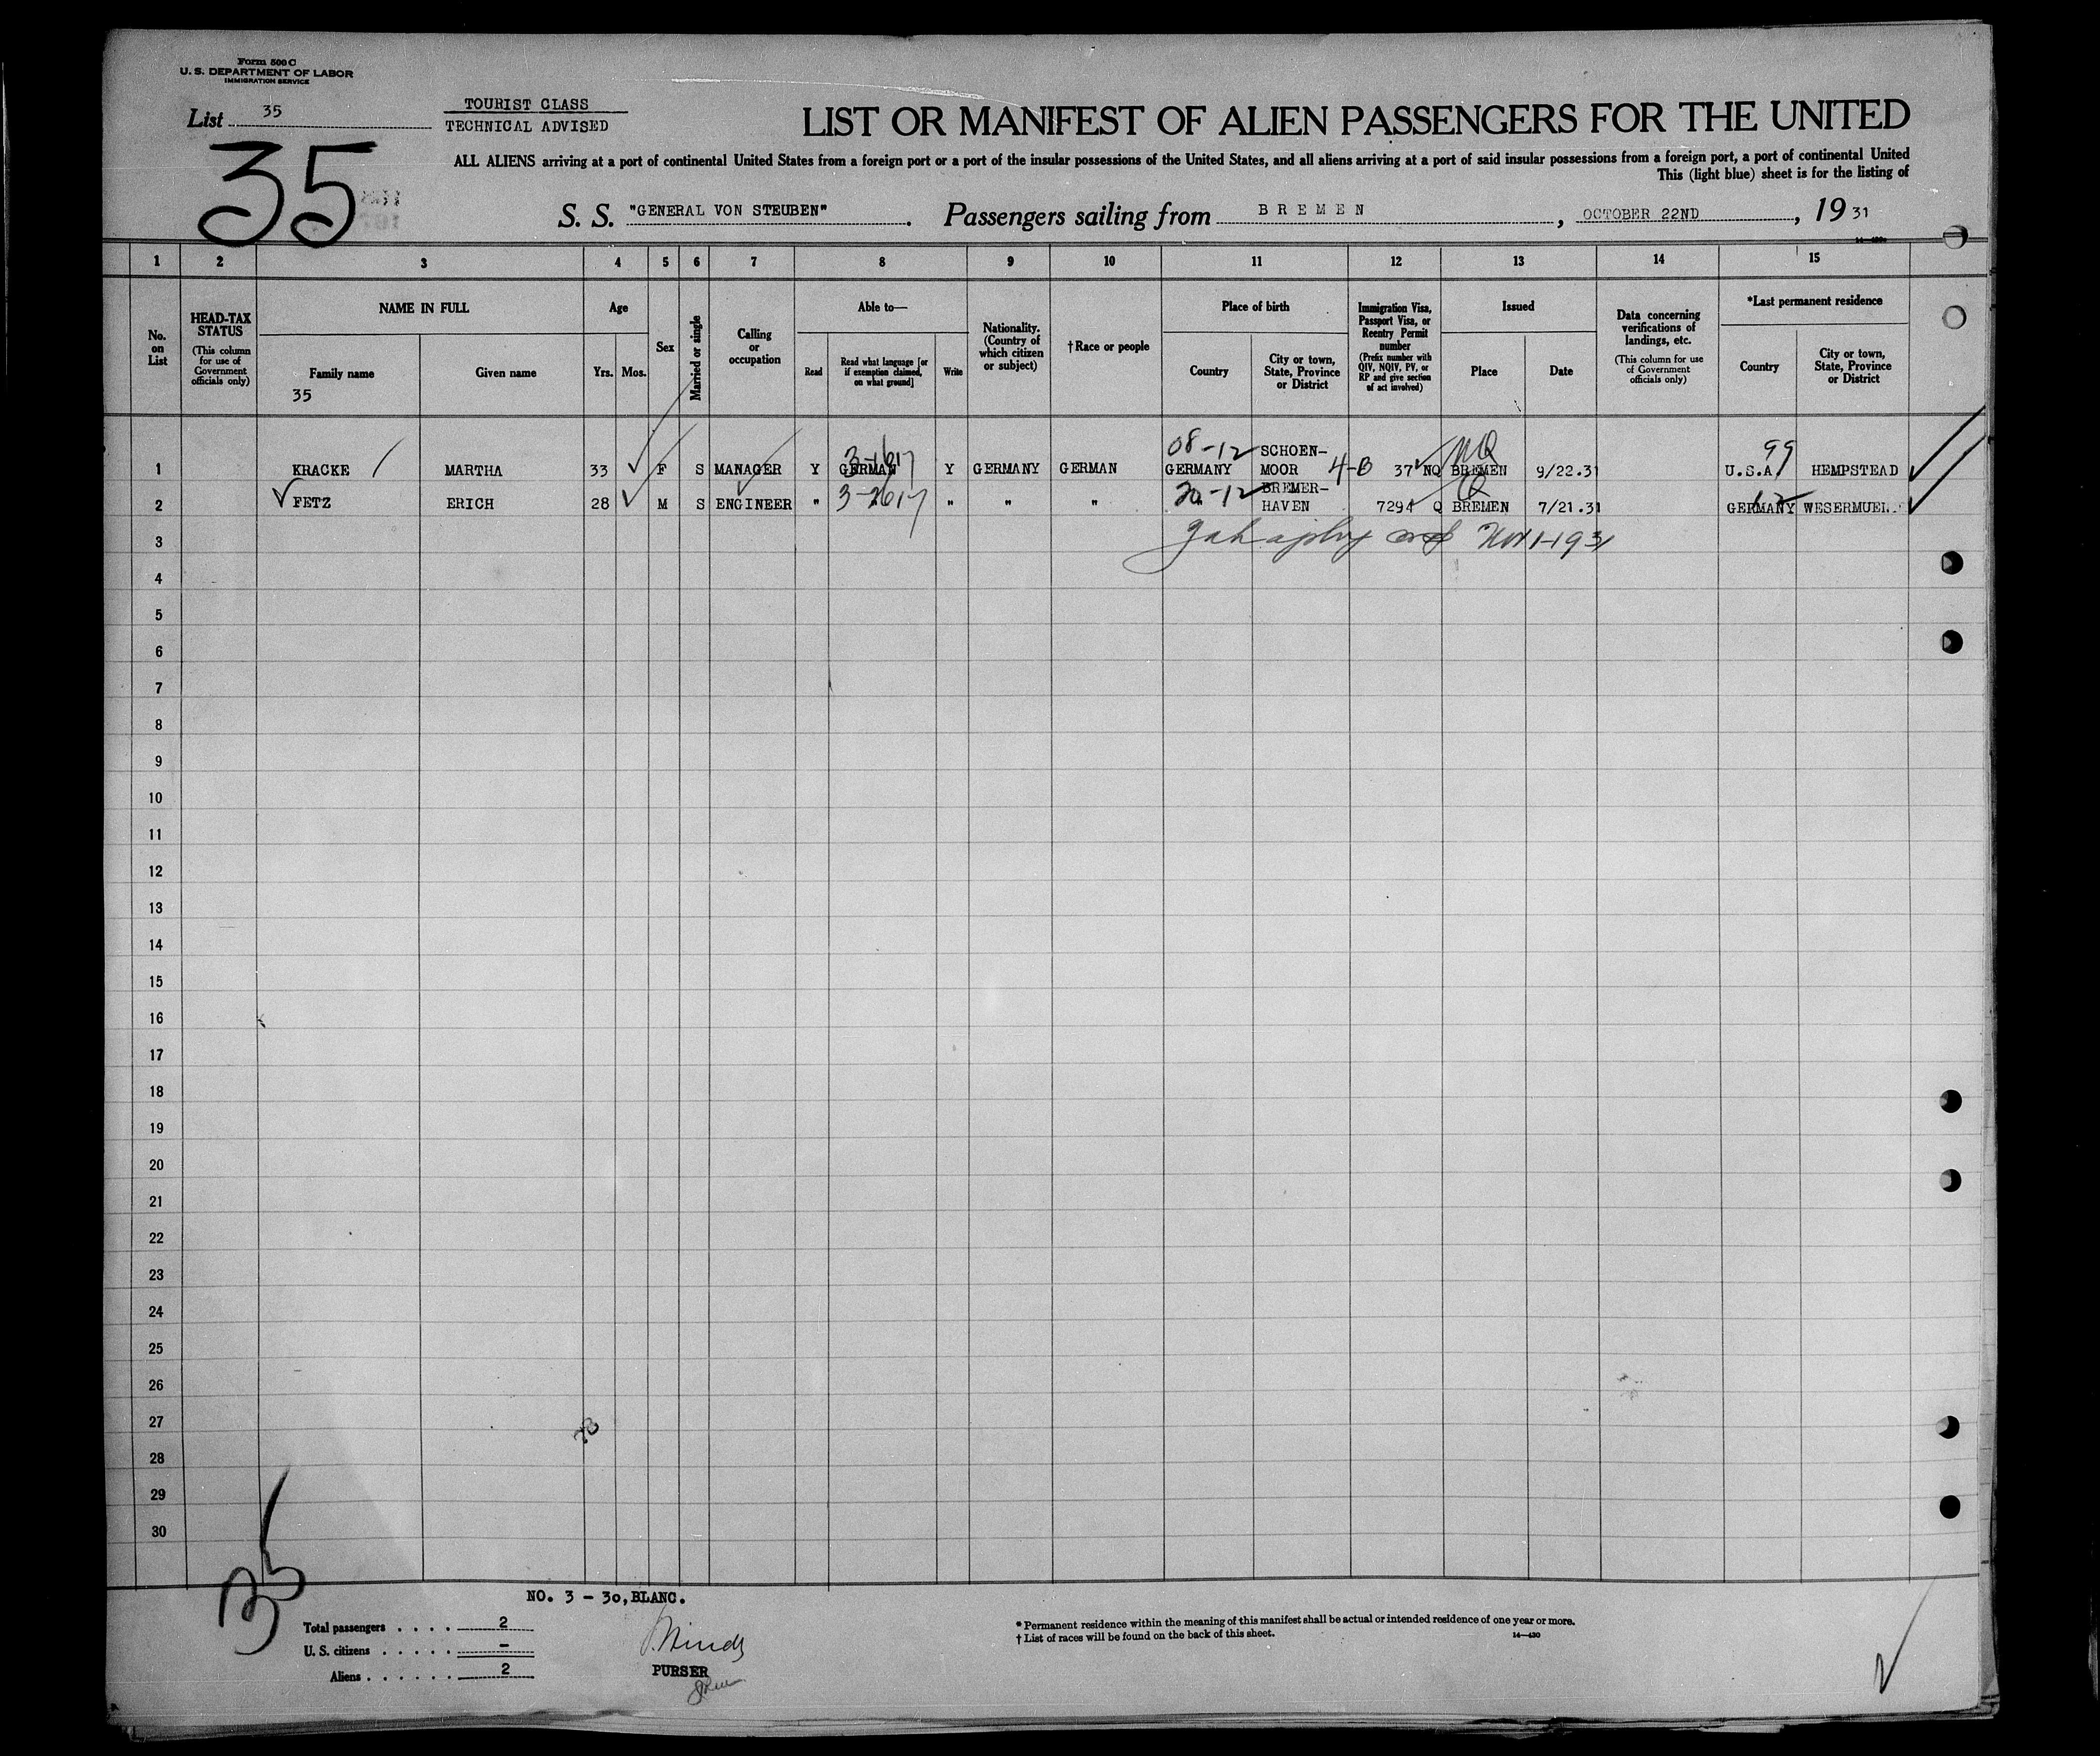 Form 500 C
U. S. DEPARTMENT OF LABOR
IMMIGRATION SERVICE
List 35
TOURIST CLASS
TECHNICAL ADVISED
35
LIST OR MANIFEST OF ALIEN PASSENGERS FOR THE UNITED
ALL ALIENS arriving at a port of continental United States from a foreign port or a port of the insular possessions of the United States, and all aliens arriving at a port of said insular possessions from a foreign port, a port of continental United
This (light blue) sheet is for the listing of
S. S. "GENERAL VON STEUBEN". Passengers sailing from BREMEN, OCTOBER 22ND, 1931
1 2 3 4 5 6 7 8 9 10 11 12 13 14 15
No. on List
HEAD-TAX STATUS (This column for use of Government officials only)
NAME IN FULL
Family name
35
Given name
Age
Yrs. Mos.
Sex
Married or single
Calling or occupation
Able to—
Read
Read what language [or if exemption claimed, on what ground]
Write
Nationality. (Country of which citizen or subject)
†Race or people
Place of birth
Country
City or town, State, Province or District
Immigration Visa, Passport Visa, or Reentry Permit number (Prefix number with QIV, NQIV, PV, or RP and give section of act involved)
Issued
Place
Date
Data concerning verifications of landings, etc. (This column for use of Government officials only)
*Last permanent residence
Country
City or town, State, Province or District
08-12 NQ 99
1 KRACKE MARTHA 33 F S MANAGER Y GERMAN Y GERMANY GERMAN GERMANY SCHOEN-MOOR 4-B 37 NQ BREMEN 9/22.31 U.S.A. HEMPSTEAD
2 FETZ ERICH 28 M S ENGINEER " " " " 20-12 BREMER-HAVEN 7294 Q BREMEN 7/21.31 GERMANY WESERMUEL
3
4
5
6
7
8
9
10
11
12
13
14
15
16
17
18
19
20
21
22
23
24
25
26
27
28
29
30
35
NO. 3 - 30, BLANC.
Total passengers .... 2
U. S. citizens ..... -
Aliens ...... 2
PURSER
* Permanent residence within the meaning of this manifest shall be actual or intended residence of one year or more.
† List of races will be found on the back of this sheet.
14—430